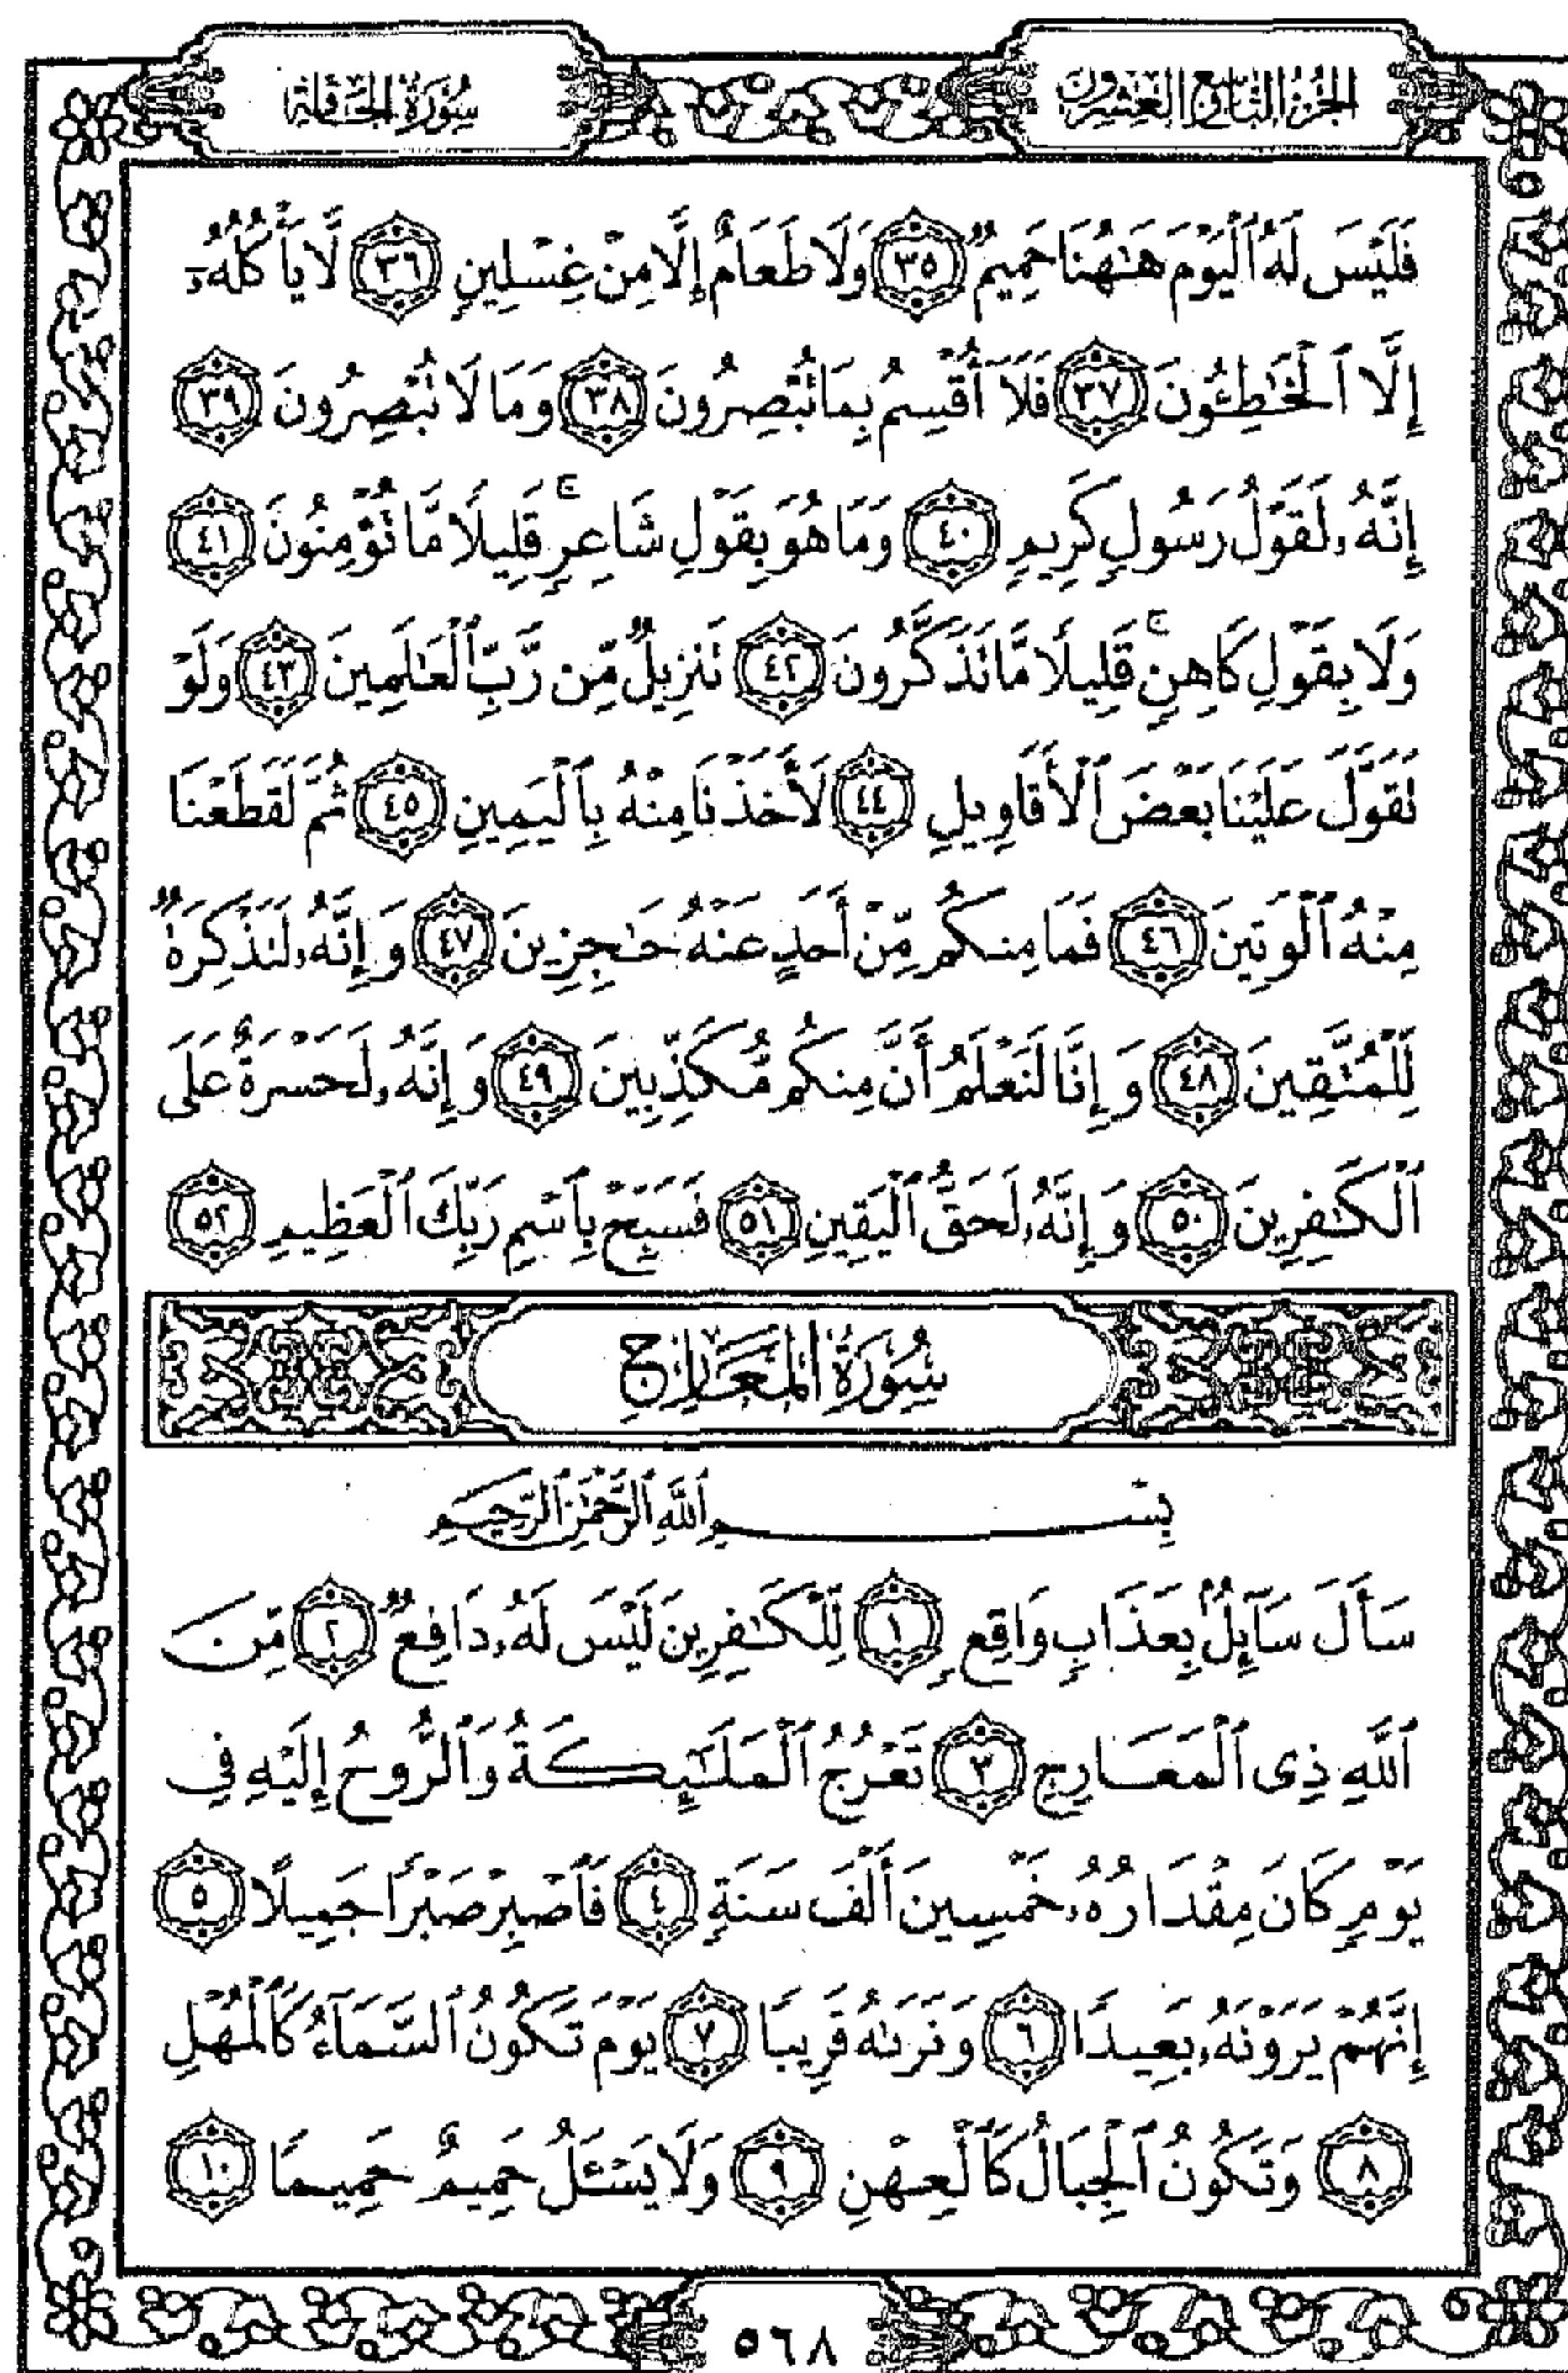 الجزء التاسع والعشرون
سورة الحاقة
فَلَيْسَ لَهُ ٱلْيَوْمَ هَـٰهُنَا حَمِيمٌ ٣٥ وَلَا طَعَامٌ إِلَّا مِنْ غِسْلِينٍ ٣٦ لَّا يَأْكُلُهُۥٓ
إِلَّا ٱلْخَـٰطِـُٔونَ ٣٧ فَلَآ أُقْسِمُ بِمَا تُبْصِرُونَ ٣٨ وَمَا لَا تُبْصِرُونَ ٣٩
إِنَّهُۥ لَقَوْلُ رَسُولٍ كَرِيمٍ ٤٠ وَمَا هُوَ بِقَوْلِ شَاعِرٍ ۚ قَلِيلًا مَّا تُؤْمِنُونَ ٤١
وَلَا بِقَوْلِ كَاهِنٍ ۚ قَلِيلًا مَّا تَذَكَّرُونَ ٤٢ تَنزِيلٌ مِّن رَّبِّ ٱلْعَـٰلَمِينَ ٤٣ وَلَوْ
تَقَوَّلَ عَلَيْنَا بَعْضَ ٱلْأَقَاوِيلِ ٤٤ لَأَخَذْنَا مِنْهُ بِٱلْيَمِينِ ٤٥ ثُمَّ لَقَطَعْنَا
مِنْهُ ٱلْوَتِينَ ٤٦ فَمَا مِنكُم مِّنْ أَحَدٍ عَنْهُ حَـٰجِزِينَ ٤٧ وَإِنَّهُۥ لَتَذْكِرَةٌ
لِّلْمُتَّقِينَ ٤٨ وَإِنَّا لَنَعْلَمُ أَنَّ مِنكُم مُّكَذِّبِينَ ٤٩ وَإِنَّهُۥ لَحَسْرَةٌ عَلَى
ٱلْكَـٰفِرِينَ ٥٠ وَإِنَّهُۥ لَحَقُّ ٱلْيَقِينِ ٥١ فَسَبِّحْ بِٱسْمِ رَبِّكَ ٱلْعَظِيمِ ٥٢
سُورَةُ المَعَارِجِ
بِسْمِ ٱللَّهِ ٱلرَّحْمَـٰنِ ٱلرَّحِيمِ
سَأَلَ سَآئِلٌۢ بِعَذَابٍ وَاقِعٍ ١ لِّلْكَـٰفِرِينَ لَيْسَ لَهُۥ دَافِعٌ ٢ مِّنَ
ٱللَّهِ ذِى ٱلْمَعَارِجِ ٣ تَعْرُجُ ٱلْمَلَـٰٓئِكَةُ وَٱلرُّوحُ إِلَيْهِ فِى
يَوْمٍ كَانَ مِقْدَارُهُۥ خَمْسِينَ أَلْفَ سَنَةٍ ٤ فَٱصْبِرْ صَبْرًا جَمِيلًا ٥
إِنَّهُمْ يَرَوْنَهُۥ بَعِيدًا ٦ وَنَرَىٰهُ قَرِيبًا ٧ يَوْمَ تَكُونُ ٱلسَّمَآءُ كَٱلْمُهْلِ
٨ وَتَكُونُ ٱلْجِبَالُ كَٱلْعِهْنِ ٩ وَلَا يَسْـَٔلُ حَمِيمٌ حَمِيمًا ١٠
٥٦٨